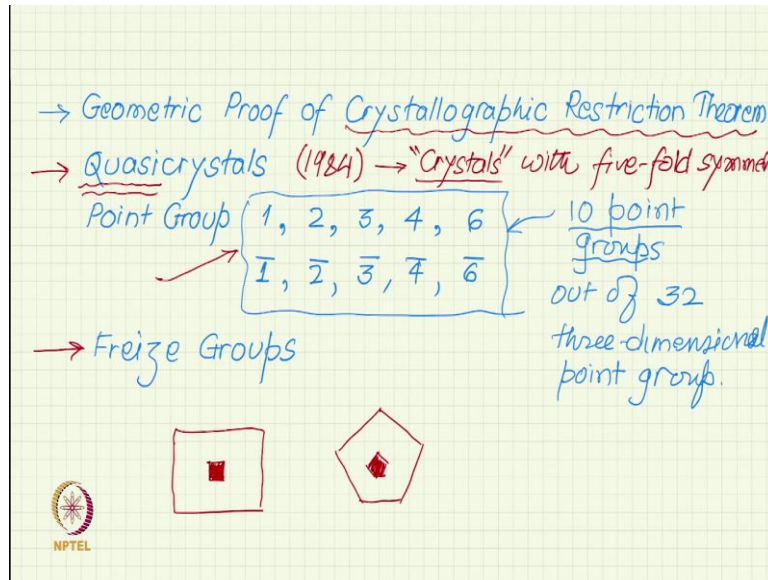 → Geometric Proof of Crystallographic Restriction Theorem
→ Quasicrystals (1984) → "Crystals" with five-fold symmet
Point Group 1, 2, 3, 4, 6 ← 10 point
1̅, 2̅, 3̅, 4̅, 6̅ groups
out of 32
→ Freize Groups three-dimensional
point group.
NPTEL